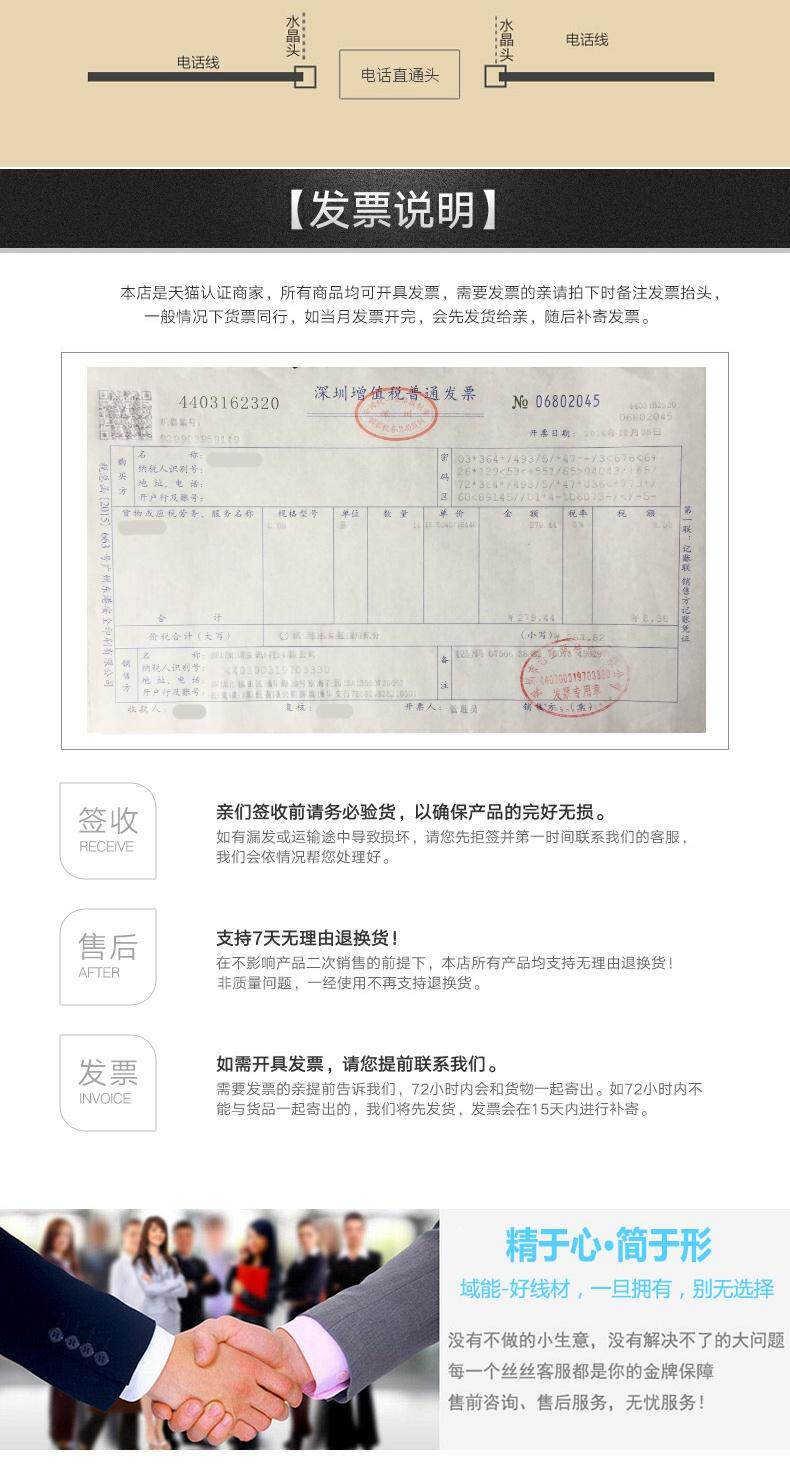 水晶头
水晶头
电话线
电话线
电话直通头
【发票说明】
本店是天猫认证商家，所有商品均可开具发票，需要发票的亲请拍下时备注发票抬头，
一般情况下货票同行，如当月发票开完，会先发货给亲，随后补寄发票。
4403162320
深圳增值税普通发票
№ 06802045
4403162320
06802045
机器编号：
开票日期：
购买方
名 称：
纳税人识别号：
地 址、电 话：
开户行及账号：
密码区
货物或应税劳务、服务名称
规格型号
单位
数 量
单 价
金 额
税率
税 额
合 计
价税合计（大写）
（小写）
销售方
名 称：
纳税人识别号：
440300319703330
地 址、电 话：
开户行及账号：
备注
440300319703330
发票专用章
收款人：
复核：
开票人：
销售方：（章）
税总函〔2015〕663
第一联：记账联 销售方记账凭证
签收
RECEIVE
亲们签收前请务必验货，以确保产品的完好无损。
如有漏发或运输途中导致损坏，请您先拒签并第一时间联系我们的客服，
我们会依情况帮您处理好。
售后
AFTER
支持7天无理由退换货！
在不影响产品二次销售的前提下，本店所有产品均支持无理由退换货！
非质量问题，一经使用不再支持退换货。
发票
INVOICE
如需开具发票，请您提前联系我们。
需要发票的亲提前告诉我们，72小时内会和货物一起寄出。如72小时内不
能与货品一起寄出的，我们将先发货，发票会在15天内进行补寄。
精于心•简于形
域能-好线材，一旦拥有，别无选择
没有不做的小生意，没有解决不了的大问题
每一个丝丝客服都是你的金牌保障
售前咨询、售后服务，无忧服务！